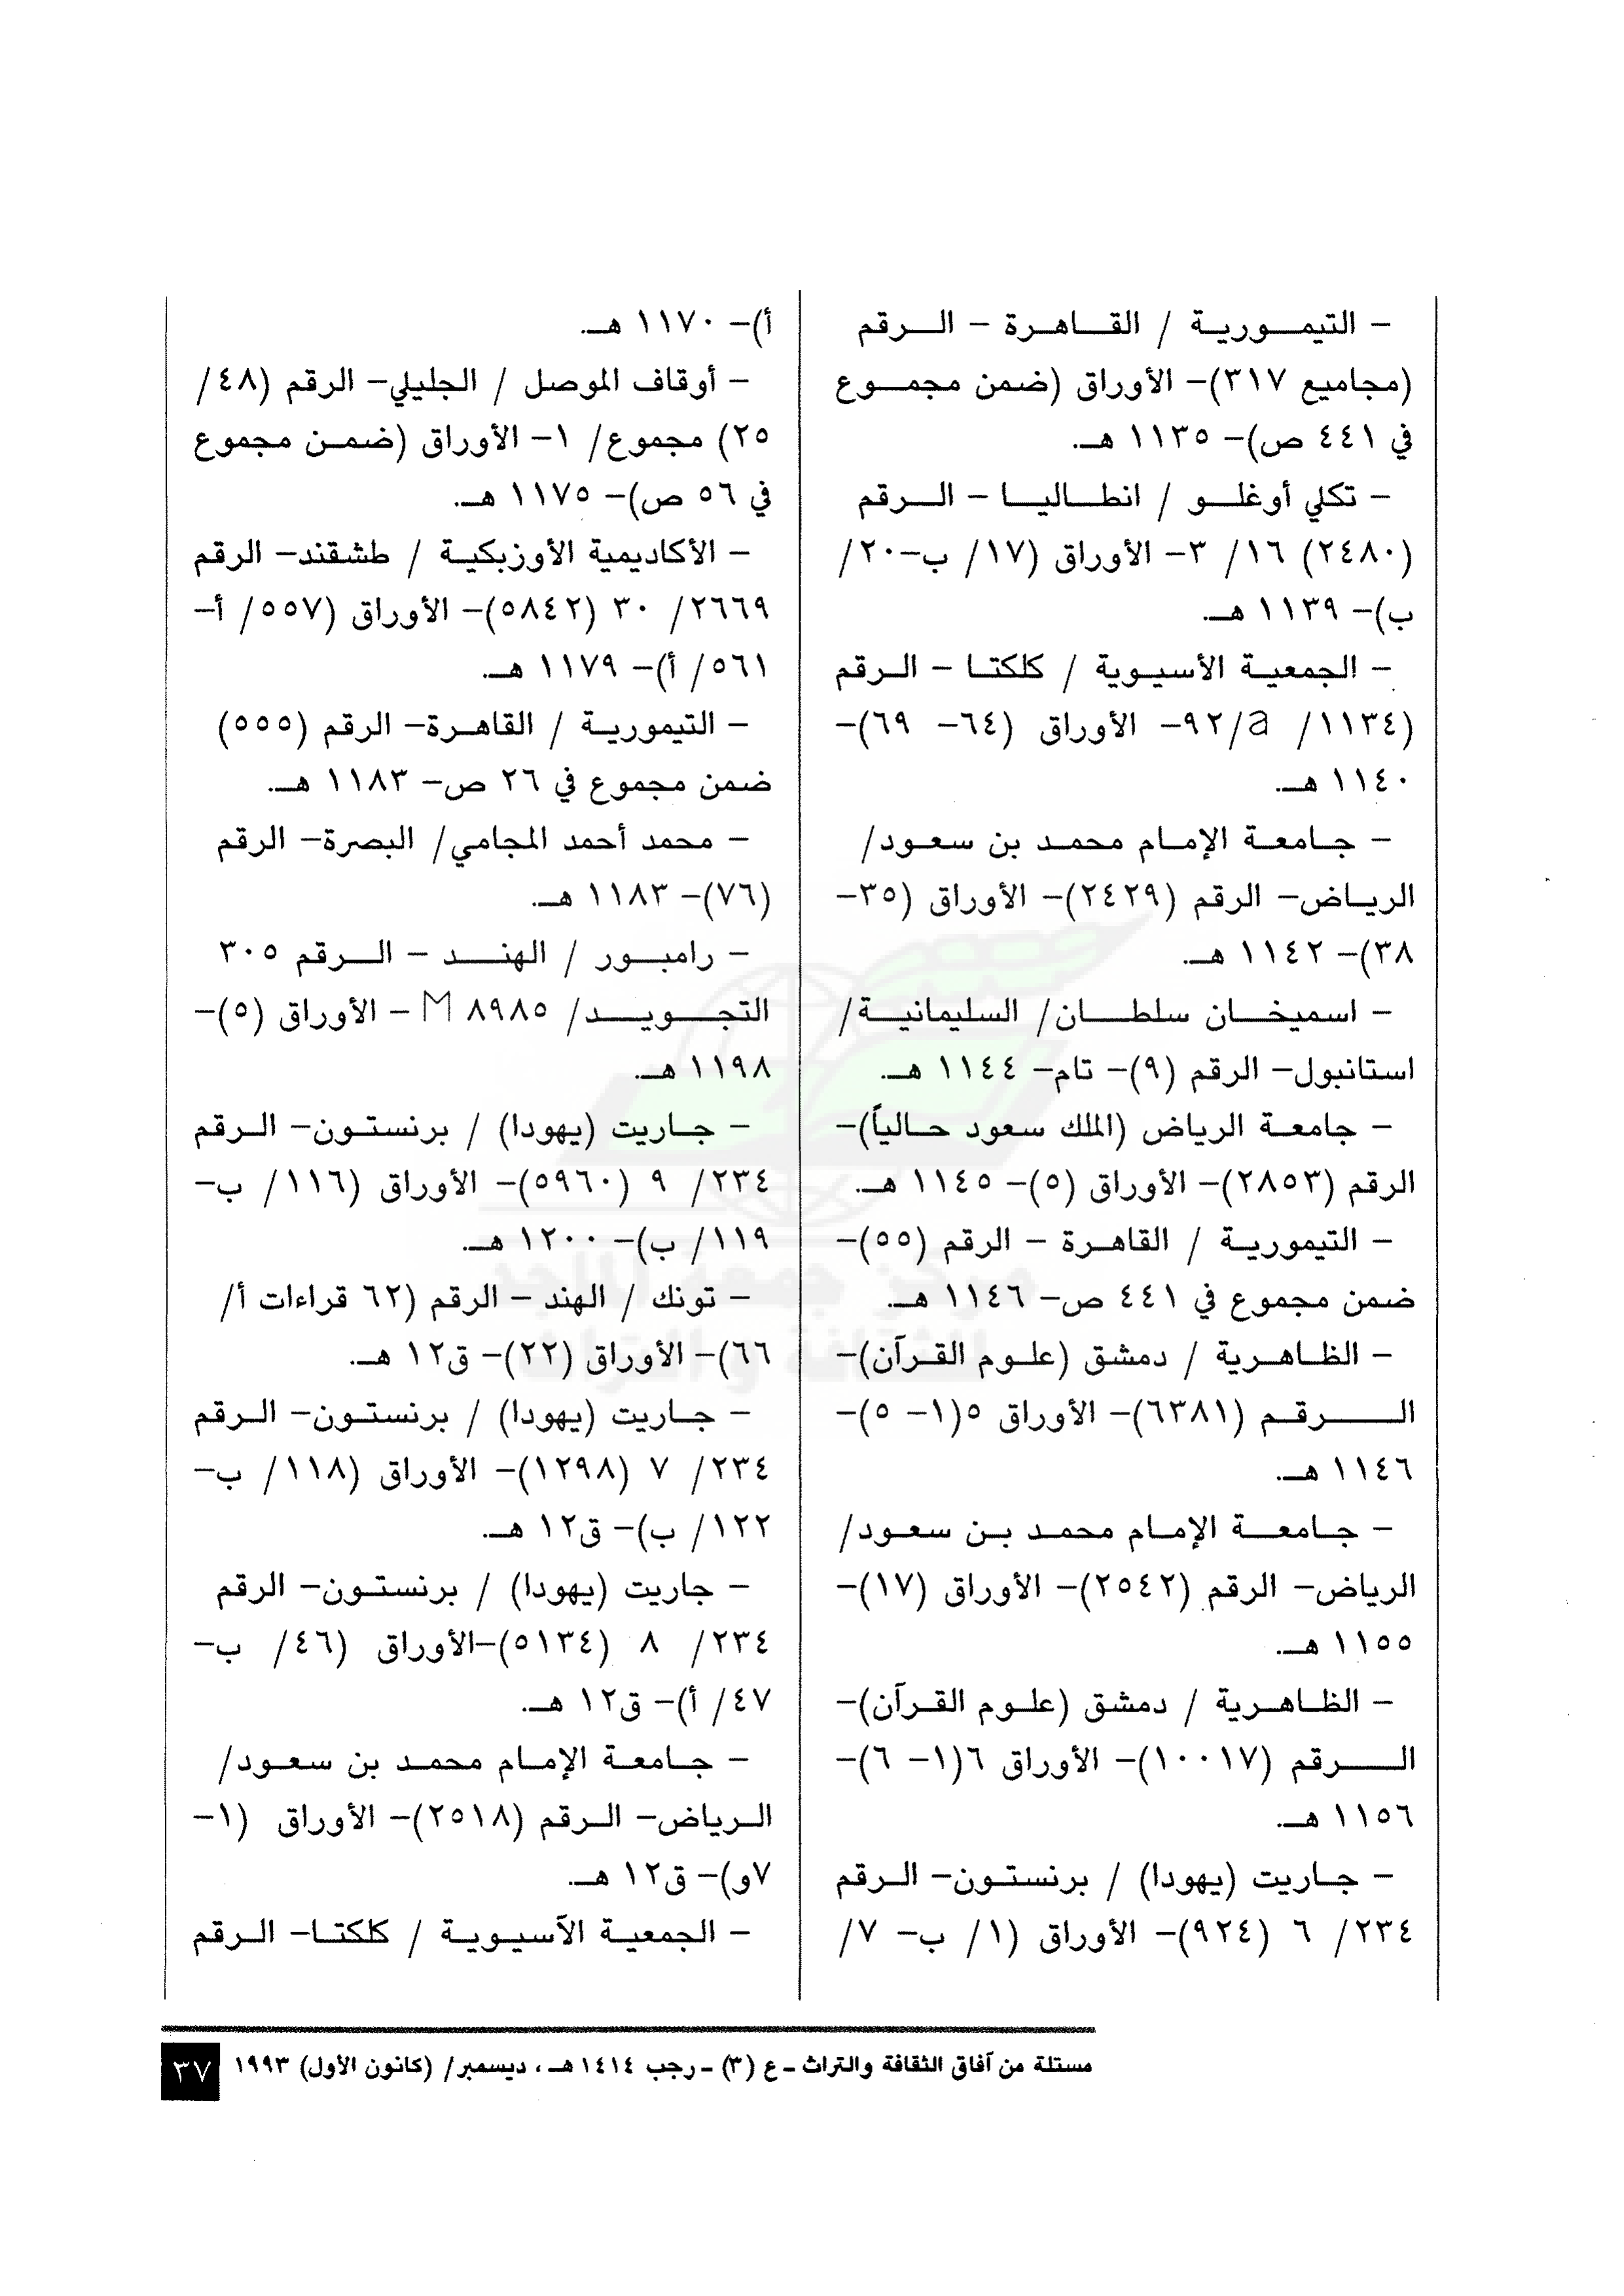 – التيمورية / القاهرة – الرقم
(مجاميع ٣١٧)– الأوراق (ضمن مجموع
في ٤٤١ ص)– ١١٣٥ هـ.
– تكلي أوغلو / انطاليا – الرقم
(٢٤٨٠) ١٦/ ٣– الأوراق (١٧/ ب–٢٠/
ب)– ١١٣٩ هـ.
– الجمعية الأسيوية / كلكتا – الرقم
(١١٣٤/ ٩٢/a– الأوراق (٦٤– ٦٩)–
١١٤٠ هـ.
– جامعة الإمام محمد بن سعود/
الرياض– الرقم (٢٤٢٩)– الأوراق (٣٥–
٣٨)– ١١٤٢ هـ.
– اسميخان سلطان/ السليمانية/
استانبول– الرقم (٩)– تام– ١١٤٤ هـ.
– جامعة الرياض (الملك سعود حالياً)–
الرقم (٢٨٥٣)– الأوراق (٥)– ١١٤٥ هـ.
– التيمورية / القاهرة – الرقم (٥٥)–
ضمن مجموع في ٤٤١ ص– ١١٤٦ هـ.
– الظاهرية / دمشق (علوم القرآن)–
الرقم (٦٣٨١)– الأوراق ٥(١– ٥)–
١١٤٦ هـ.
– جامعة الإمام محمد بن سعود/
الرياض– الرقم (٢٥٤٢)– الأوراق (١٧)–
١١٥٥ هـ.
– الظاهرية / دمشق (علوم القرآن)–
الرقم (١٠٠١٧)– الأوراق ٦(١– ٦)–
١١٥٦ هـ.
– جاريت (يهودا) / برنستون– الرقم
٢٣٤/ ٦ (٩٢٤)– الأوراق (١/ ب– ٧/
أ)– ١١٧٠ هـ.
– أوقاف الموصل / الجليلي– الرقم (٤٨/
٢٥) مجموع/ ١– الأوراق (ضمن مجموع
في ٥٦ ص)– ١١٧٥ هـ.
– الأكاديمية الأوزبكية / طشقند– الرقم
٢٦٦٩/ ٣٠ (٥٨٤٢)– الأوراق (٥٥٧/ أ–
٥٦١/ أ)– ١١٧٩ هـ.
– التيمورية / القاهرة– الرقم (٥٥٥)
ضمن مجموع في ٢٦ ص– ١١٨٣ هـ.
– محمد أحمد المجامي/ البصرة– الرقم
(٧٦)– ١١٨٣ هـ.
– رامبور / الهند – الرقم ٣٠٥
التجويد/ ٨٩٨٥ M – الأوراق (٥)–
١١٩٨ هـ.
– جاريت (يهودا) / برنستون– الرقم
٢٣٤/ ٩ (٥٩٦٠)– الأوراق (١١٦/ ب–
١١٩/ ب)– ١٢٠٠ هـ.
– تونك / الهند – الرقم (٦٢ قراءات أ/
٦٦)– الأوراق (٢٢)– ق١٢ هـ.
– جاريت (يهودا) / برنستون– الرقم
٢٣٤/ ٧ (١٢٩٨)– الأوراق (١١٨/ ب–
١٢٢/ ب)– ق١٢ هـ.
– جاريت (يهودا) / برنستون– الرقم
٢٣٤/ ٨ (٥١٣٤)–الأوراق (٤٦/ ب–
٤٧/ أ)– ق١٢ هـ.
– جامعة الإمام محمد بن سعود/
الرياض– الرقم (٢٥١٨)– الأوراق (١–
٧و)– ق١٢ هـ.
– الجمعية الآسيوية / كلكتا– الرقم
مركز جمعة الماجد
للثقافة و التراث
مستلة من آفاق الثقافة والتراث ـ ع (٣) ـ رجب ١٤١٤ هـ ، ديسمبر/ (كانون الأول) ١٩٩٣
٣٧